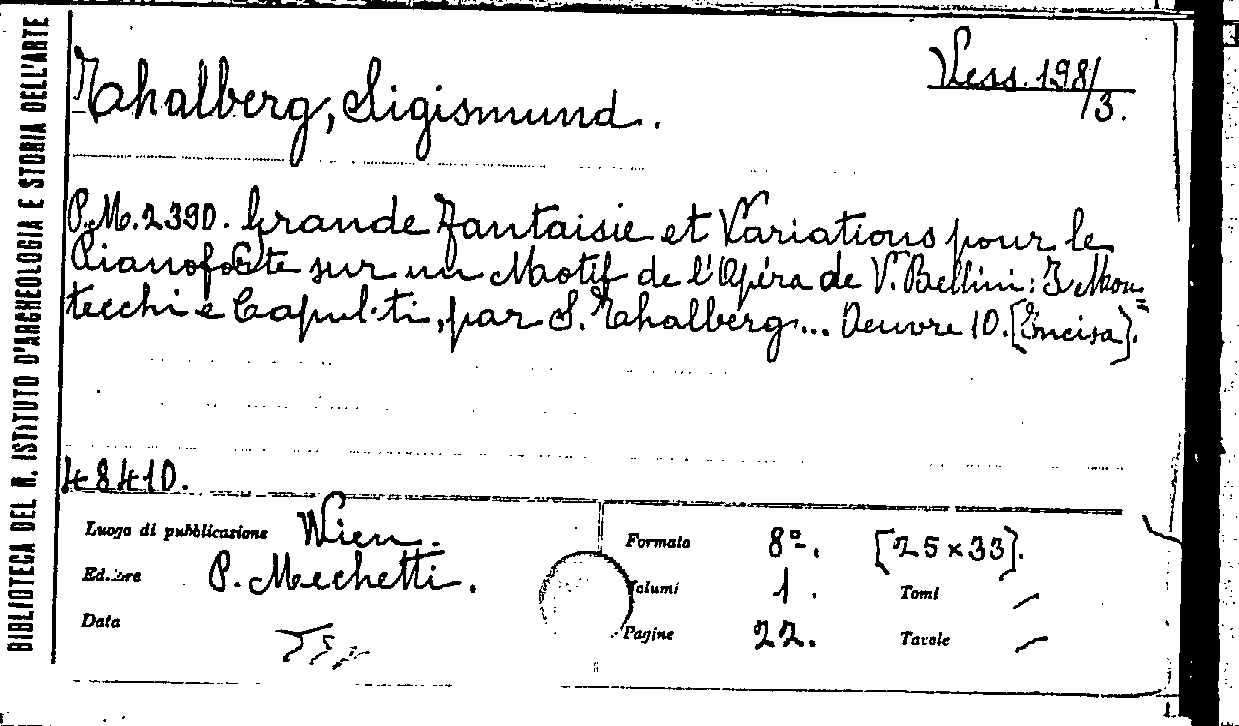 BIBLIOTECA DEL R. ISTITUTO D'ARCHEOLOGIA E STORIA DELL'ARTE
Thalberg, Sigismund.
Vess. 198/3.
P.M. 2390. Grande Fantaisie et Variations pour le
Pianoforte sur un Motif de l'Opéra de V. Bellini: I Mon=
tecchi e Capuleti, par S. Thalberg... Oeuvre 10. [Incisa].
48410.
Luogo di pubblicazione Wien.
Editore P. Mechetti.
Data
Formato 8º. [25 x 33].
Volumi 1. Tomi /
Pagine 22. Tavole /